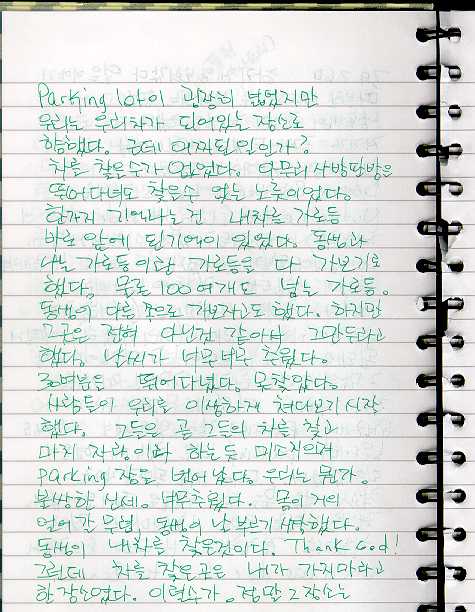 Parking lot이 굉장히 넓었지만
우리는 우리차가 되어있는 장소로
향했다. 근데 어찌된 일인가?
차를 찾을수가 없었다. 아무리 사방팔방을
뛰어다녀도 찾을수 없는 노릇이었다.
한가지 기억나는건 내차를 가로등
바로 앞에 된기억이 있었다. 동생과
나는 가로등이란 가로등을 다 가보기로
했다. 물론 100여개도 넘는 가로등.
동생이 다른 쪽으로 가보자고도 했다. 하지만
그곳은 전혀 아닌것 같아서 그만두라고
했다. 날씨가 너무너무 추웠다.
30여분을 뛰어다녔다. 못찾았다.
사람들이 우리를 이상하게 쳐다보기 시작
했다. 그들은 곧 그들의 차를 찾고
마치 자랑이라 하는듯 미소지으며
parking 장을 벗어났다. 우리는 뭔가.
불쌍한 신세. 너무추웠다. 몸이 거의
얼어갈 무렵, 동생이 날 부르기 시작했다.
동생이 내차를 찾은것이다. Thank God!
그런데 차를 찾은곳은 내가 가지마라고
한 장소였다. 이럴수가. 정말 그 장소는